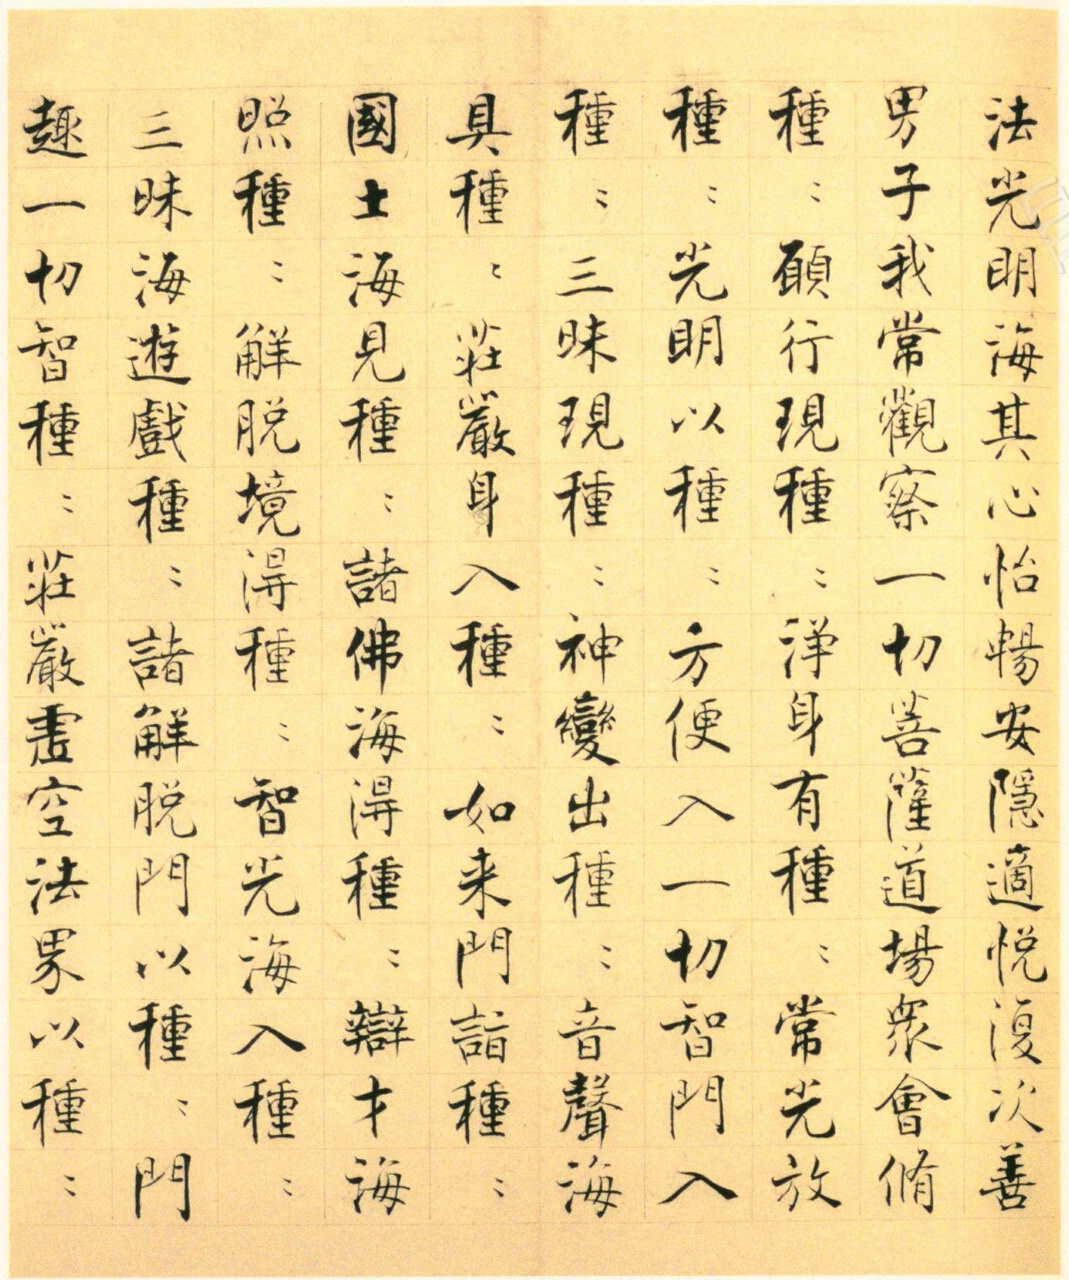 法光明海其心怡暢安隱適悅復次善
男子我常觀察一切菩薩道場眾會脩
種〻願行現種〻淨身有種〻常光放
種〻光明以種〻方便入一切智門入
種〻三昧現種〻神變出種〻音聲海
具種〻莊嚴身入種〻如来門詣種〻
國土海見種〻諸佛海得種〻辯才海
照種〻解脫境得種〻智光海入種〻
三昧海遊戲種〻諸解脫門以種〻門
趣一切智種〻莊嚴虛空法界以種〻